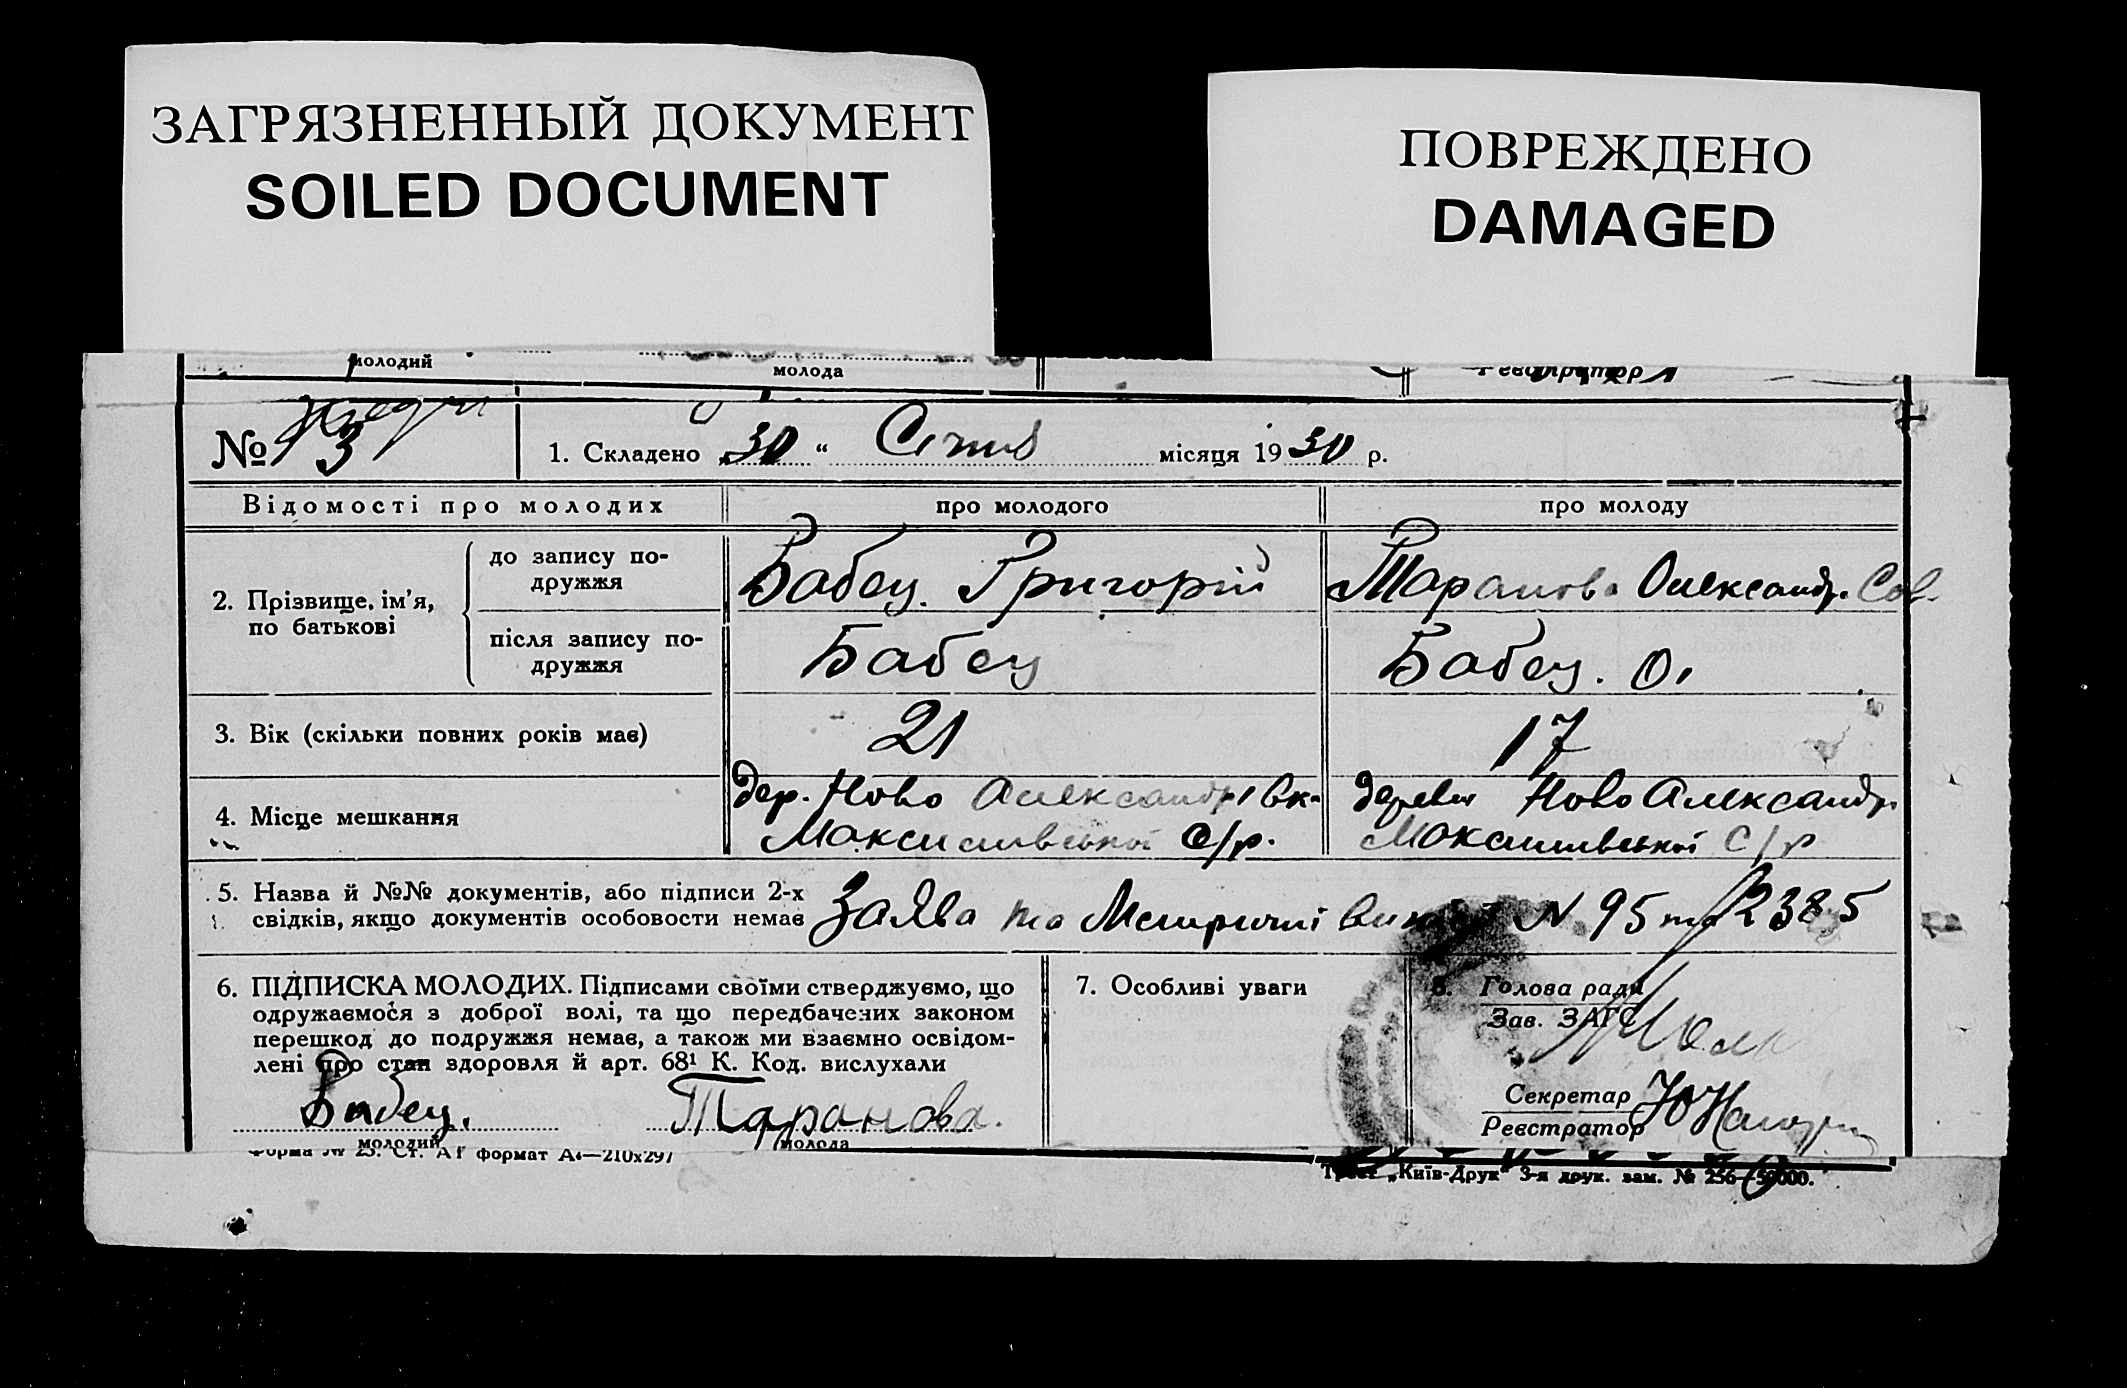 ЗАГРЯЗНЕННЫЙ ДОКУМЕНТ
SOILED DOCUMENT
ПОВРЕЖДЕНО
DAMAGED
молодий
молода
Реєстратор
№ 3
1. Складено „30“ Січня місяця 1930 р.
Відомості про молодих
про молодого
про молоду
2. Прізвище, ім'я, по батькові
до запису по-
дружжя
Бабец. Григорій
Таранова Олександр. Сав.
після запису по-
дружжя
Бабец
Бабец. О.
3. Вік (скільки повних років має)
21
17
4. Місце мешкання
дер. Ново Олександрівк-
Максимівської с/р.
деревня Ново Александр.
Максимівської с/р
5. Назва й №№ документів, або підписи 2-х
свідків, якщо документів особовости немає
Заява та Метричні N 95 та 2385
6. ПІДПИСКА МОЛОДИХ. Підписами своїми стверджуємо, що
одружаємося з доброї волі, та що передбачених законом
перешкод до подружжя немає, а також ми взаємно освідом-
лені про стан здоровля й арт. 68¹ К. Код. вислухали
Бабец.
Таранова.
молодий
молода
7. Особливі уваги
8. Голова ради
Зав. ЗАГС
Секретар
Реєстратор
Форма № 25. Ст. А формат А₄—210х297
Трест „Київ-Друк“ 3-я друк. зам. № 256—50000.